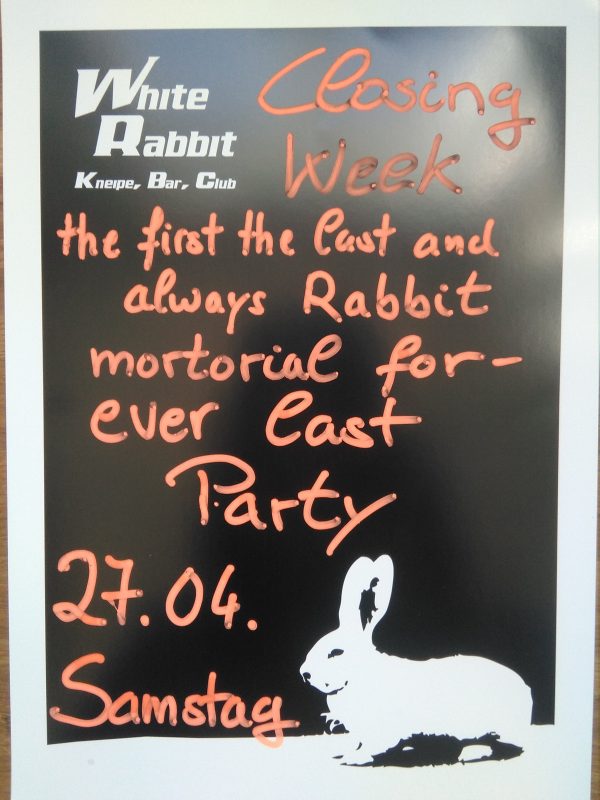 White
Rabbit
Kneipe, Bar, Club
Closing
Week
the first the last and
always Rabbit
mortorial for-
ever last
Party
27.04.
Samstag